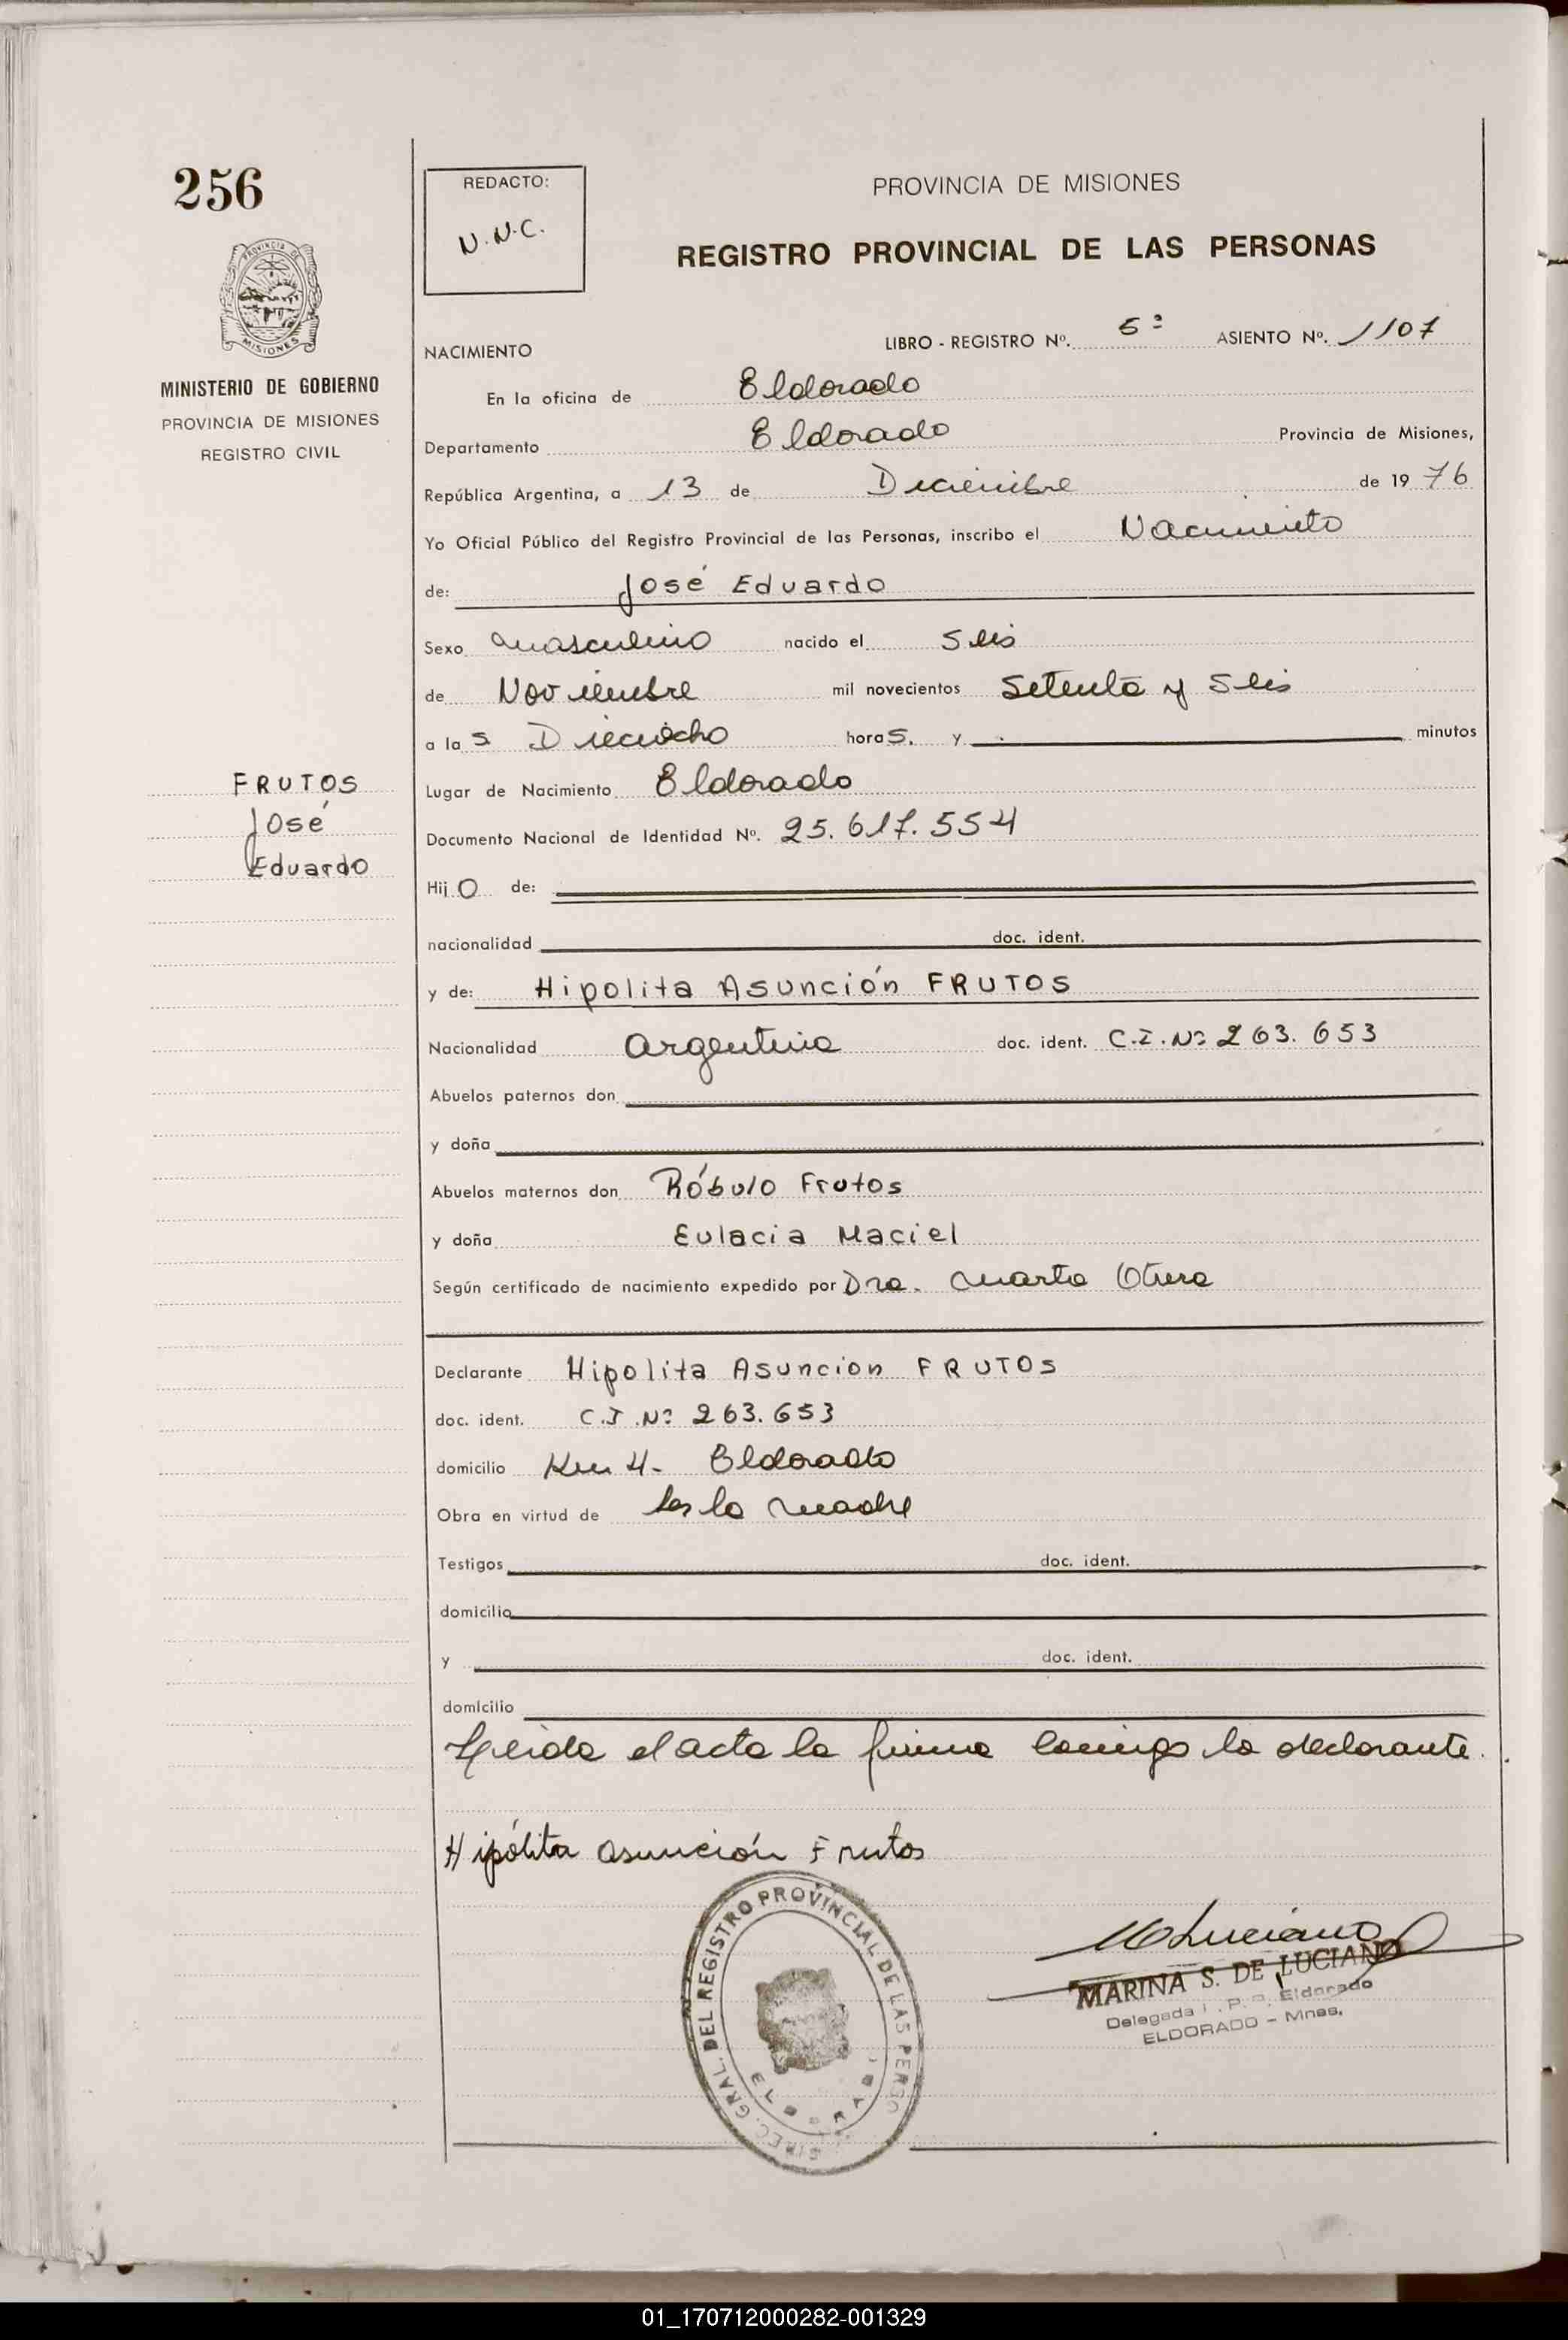 256
REDACTO:
N.N.C.
PROVINCIA DE MISIONES
REGISTRO PROVINCIAL DE LAS PERSONAS
PROVINCIA
MISIONES
MINISTERIO DE GOBIERNO
PROVINCIA DE MISIONES
REGISTRO CIVIL
NACIMIENTO LIBRO - REGISTRO Nº. 5º ASIENTO Nº. 1107
En la oficina de Eldorado
Departamento Eldorado Provincia de Misiones,
República Argentina, a 13 de Diciembre de 1976
Yo Oficial Público del Registro Provincial de las Personas, inscribo el Nacimiento
de: José Eduardo
Sexo masculino nacido el Seis
de Noviembre mil novecientos Setenta y Seis
a las Dieciocho horas. y minutos
FRUTOS
José
Eduardo
Lugar de Nacimiento Eldorado
Documento Nacional de Identidad Nº. 25.617.554
Hijo de:
nacionalidad doc. ident.
y de: Hipolita Asunción FRUTOS
Nacionalidad Argentina doc. ident. C.I.Nº 263.653
Abuelos paternos don
y doña
Abuelos maternos don Róbulo Frutos
y doña Eulacia Maciel
Según certificado de nacimiento expedido por Dra. Marta
Declarante Hipolita Asuncion FRUTOS
doc. ident. C.I.Nº 263.653
domicilio Km 4- Eldorado
Obra en virtud de Ser la madre
Testigos doc. ident.
domicilio
y doc. ident.
domicilio
Leida el acta la firma conmigo la declarante.
Hipólita Asunción Frutos
DIREC. GRAL. DEL REGISTRO PROVINCIAL DE LAS PERSO
ELDORADO
MARINA S. DE LUCIANO
Delegada R. P. P. Eldorado
ELDORADO - Mnes.
01_170712000282-001329